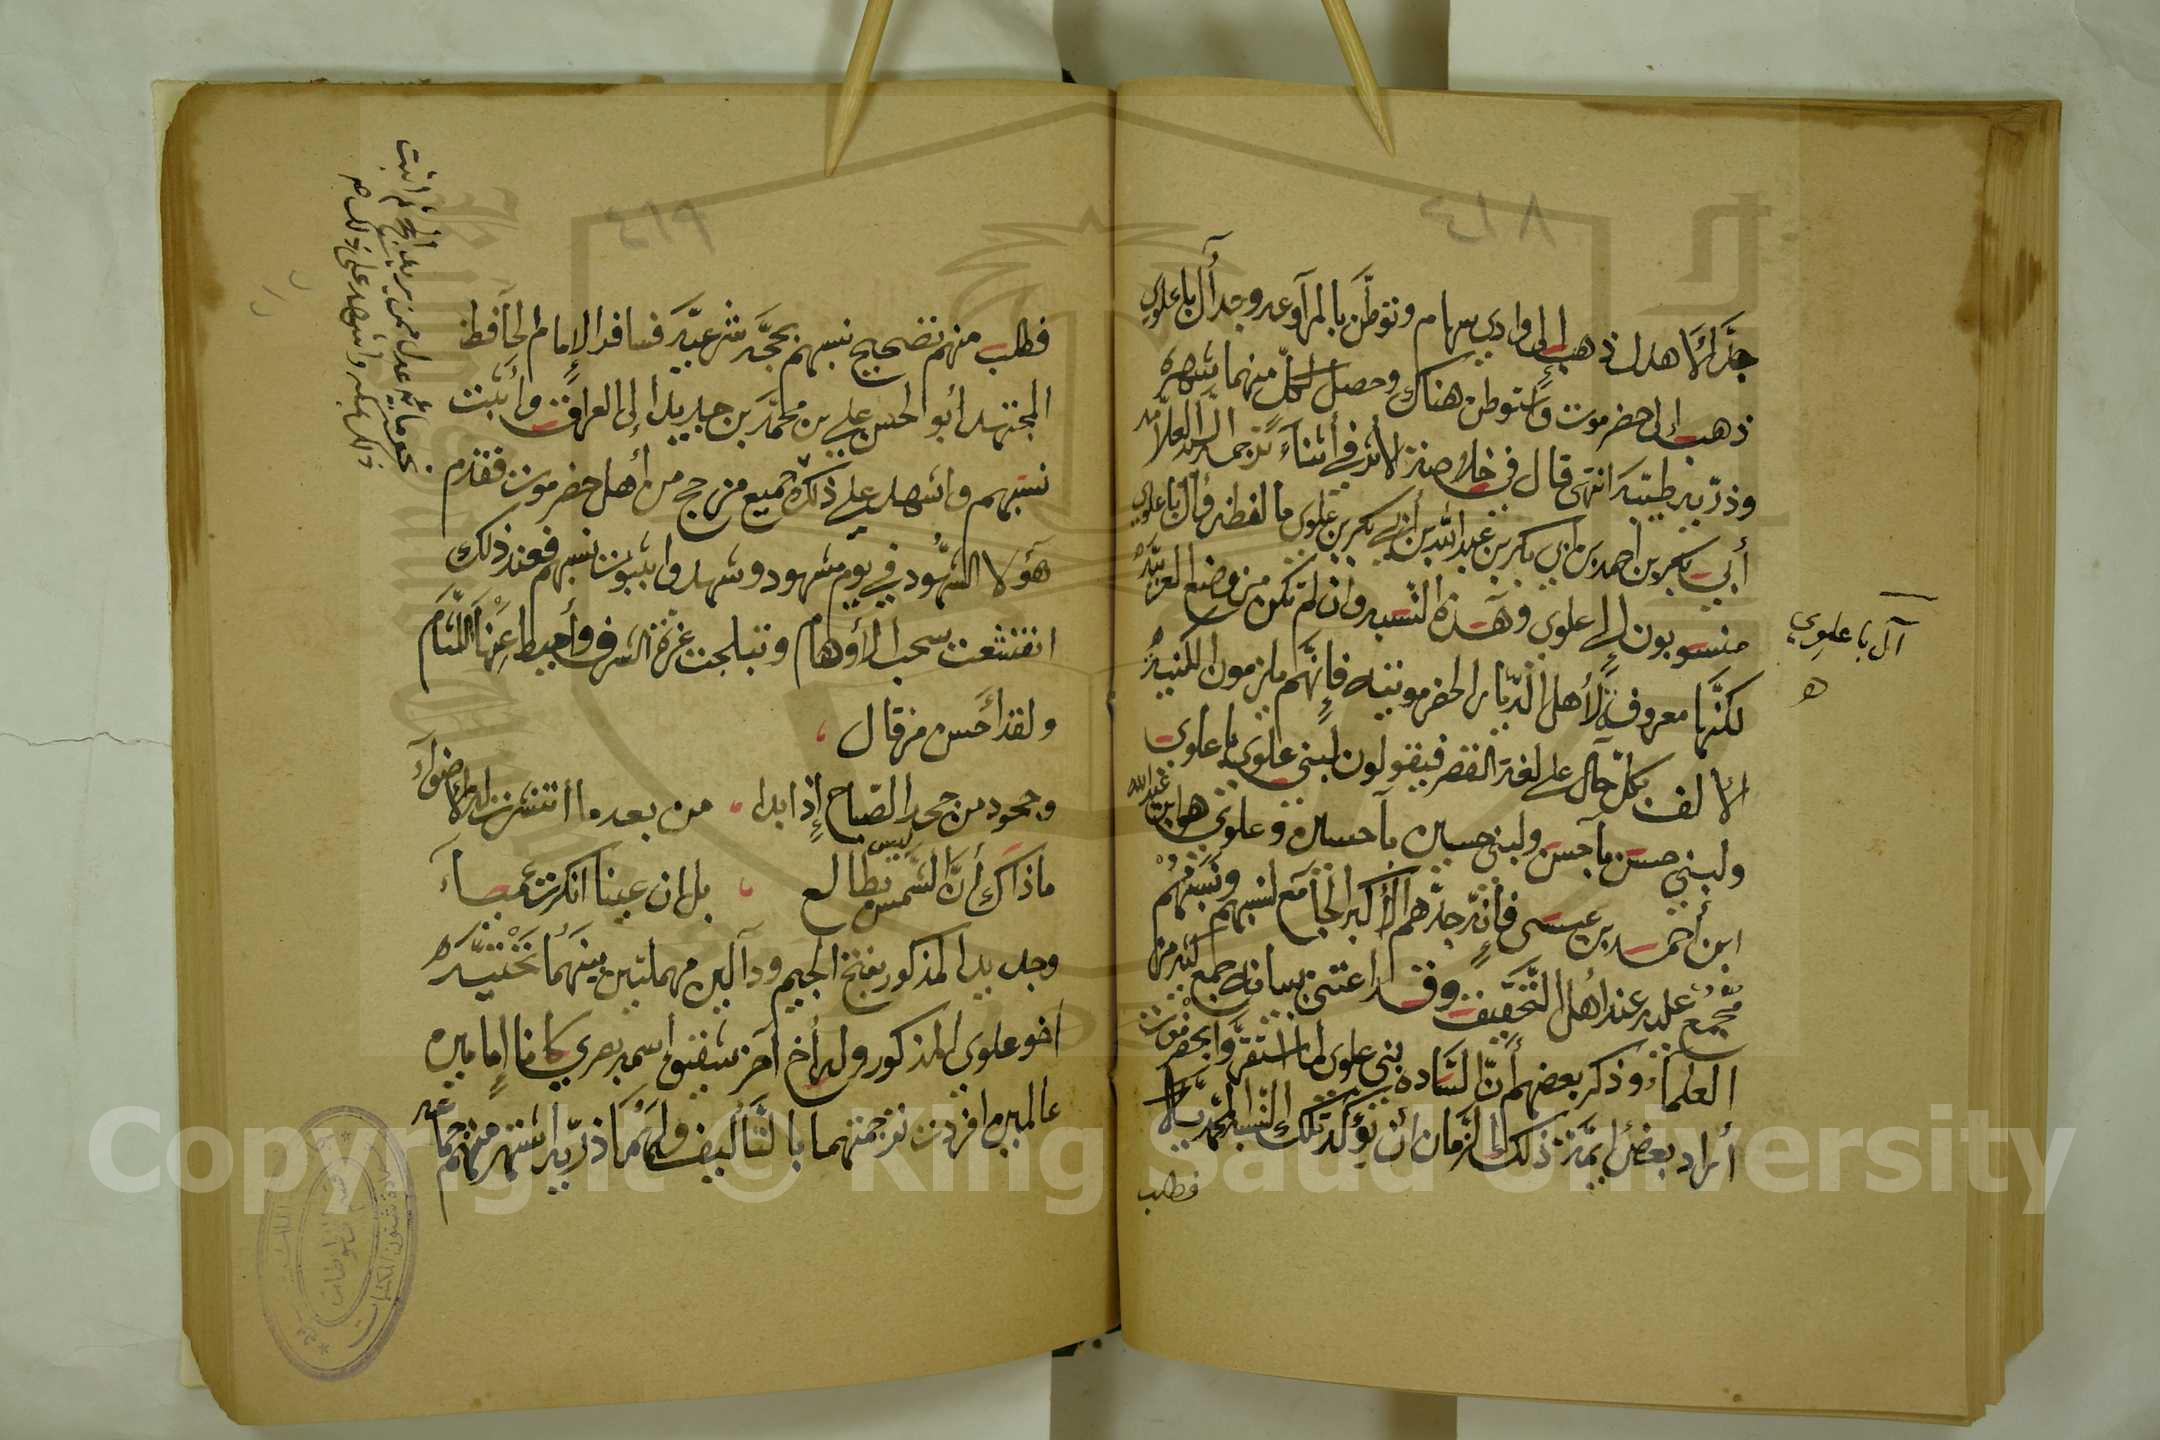 ٤١٨
جد الاهدل ذهب الى وادي سهام وتوطن بالمراوعه وجد آل باعلوي
ذهب إلى حضرموت واستوطن هناك وحصل لكل منهما شهره
وذريه طيبه انتهى قال في خلاصة الأثر في أثناء ترجمة السيد العلامه
أبي بكر بن احمد بن ابي بكر بن عبد الله بن أبي بكر بن علوي ما لفظه وآل باعلوي
منسوبون إلى علوي وهذه النسبه وان لم تكن من وضع العربيه
لكنها معروفة لأهل الديار الحضرموتيه فإنهم ملزمون الكنية
الالف بكل حال على لغة القصر فيقولون لبني علوي باعلوي
ولبني حسن باحسن ولبني حسين باحسين وعلوي هو ابن عبد الله
ابن أحمد بن عيسى فإنه جدهم الأكبر الجامع لنسبهم ونسبهم
مجمع عليه عند أهل التحقيق وقد اعتنى ببيانه جمع كثير من
العلماء وذكر بعضهم أن الساده بني علوي لما استقروا بحضرموت
أراد بعض أئمة ذلك الزمان ان يؤكد تلك النسبة المحمديه
فطلب
آل باعلوي
ه
٤١٩
فطلب منهم تصحيح نسبهم بحجة شرعيه فسافر الإمام الحافظ
المجتهد أبو الحسن علي بن محمد بن جديد إلى العراق وأثبت
نسبهم واشهد على ذلك جميع من حج من أهل حضرموت فقدم
هؤلا الشهود في يوم مشهود وشهدوا بثبوت نسبهم فعند ذلك
انقشعت سحب الأوهام وتبلجت غرة الشرف وأميط عنها اللثام
ولقد أحسن من قال
وجحود من جحد الصباح إذا بدا من بعد ما انتشرت له الأضواء
ماذاك أن الشمس ليس بطالع بل ان عينا انكرت عمياء
وجديد المذكور بفتح الجيم ودالين مهملتين بينهما تحتيه
اخو علوي المذكور وله أخ آخر شقيق اسمه بصري كانا إمامين
عالمين افردت ترجمتهما بالتأليف ولهما ذريه اشتهر منهم جماعه
نحو مائة عدل ممن يريد الحج ثم اثبت
ذلك بمكه واشهد على ذلك